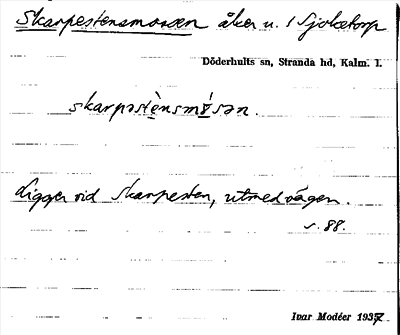 Skarpestensmossen åker u. 1 Sjoketorp
Döderhults sn, Stranda hd, Kalm. l.
skarpəstènsmɵ́sən.
Ligger vid Skarpesten, utmed vägen.
s. 88.
Ivar Modéer 1937.